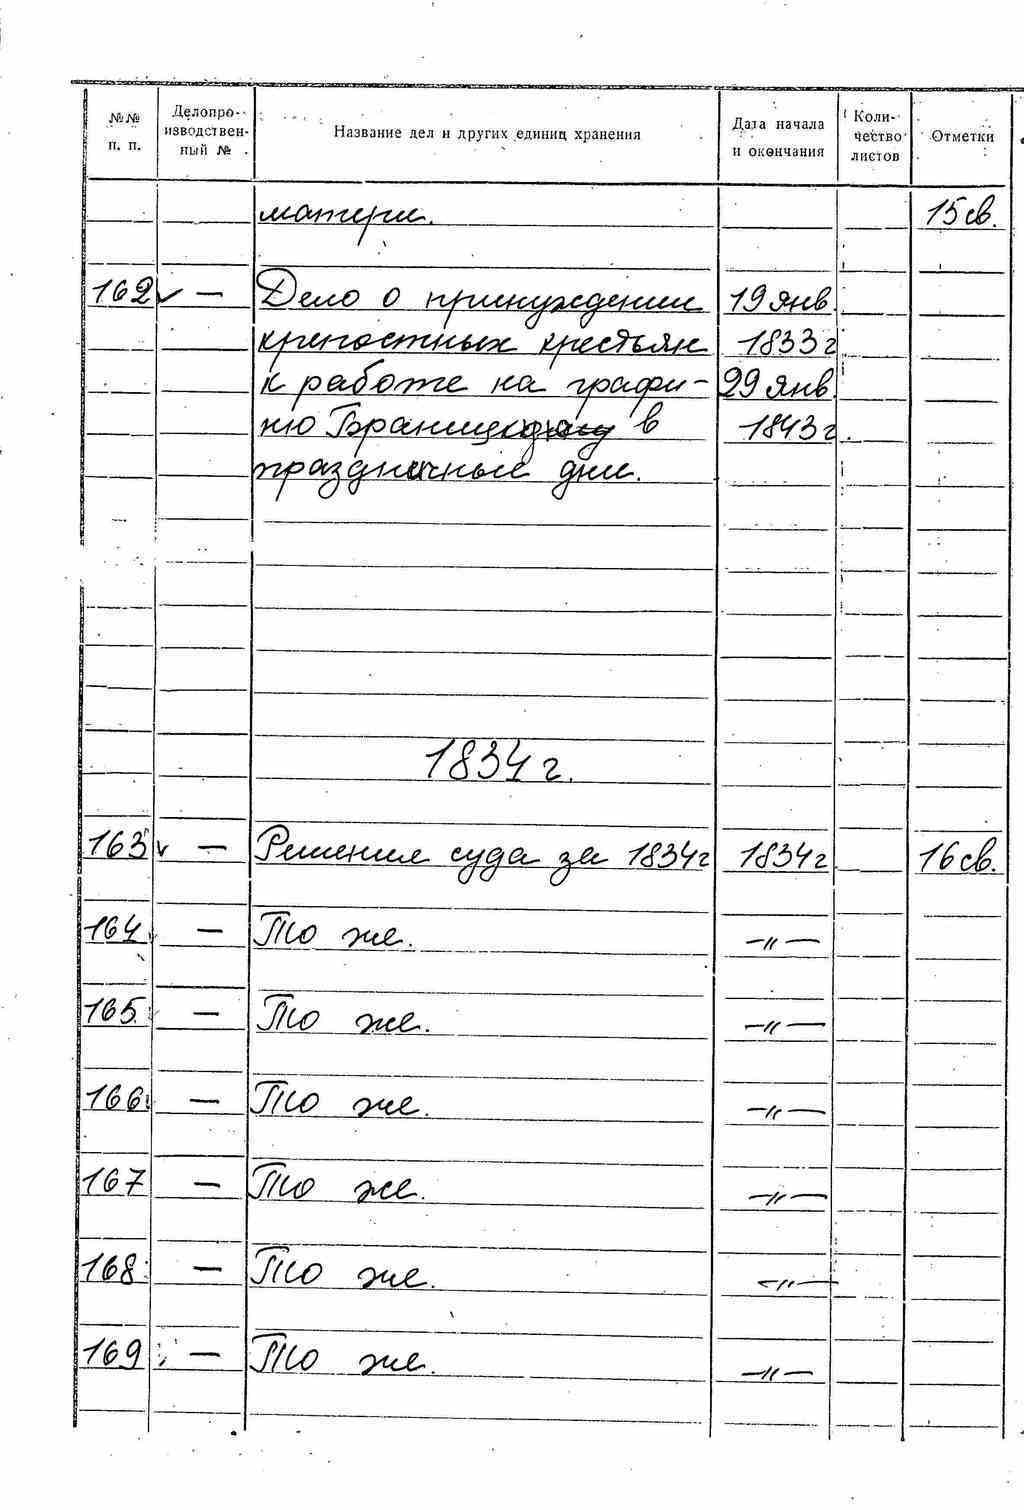 №№ п. п. | Делопроизводственный № | Название дел и других единиц хранения | Дата начала и окончания | Количество листов | Отметки
матери. | 15 св.
162 ✓ — Дело о принуждении | 19 янв.
крепостных крестьян | 1833 г
к работе на графи- | 29 янв.
ню Браницкую в | 1843 г.
праздничные дни.
1834 г.
163 ✓ — Решения суда за 1834 г | 1834 г. | 16 св.
164. — То же. —"—
165. — То же. —"—
166. — То же. —"—
167 — То же. —"—
168. — То же. —"—
169 — То же. —"—